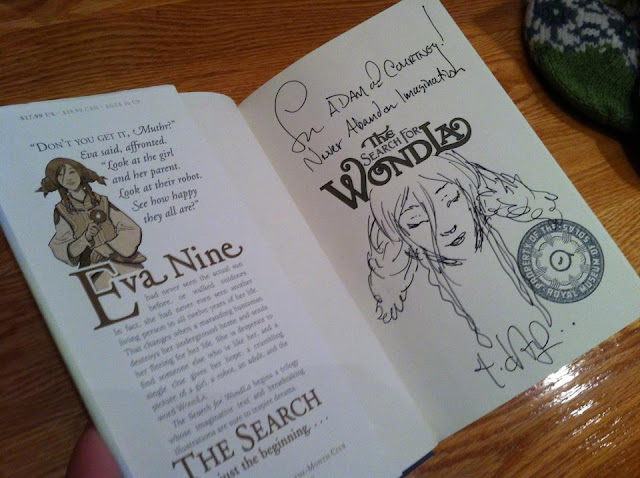 $17.99 US - $19.99 CAN - AGES 10 UP
"DON'T YOU GET IT, Muthr?"
Eva said, affronted.
"Look at the girl
and her parent.
Look at their robot.
See how happy
they all are?"
EVA NINE
had never seen the actual sun
before, or walked outdoors.
In fact, she had never even seen another
living person in all twelve years of her life.
That changes when a marauding huntsman
destroys her underground home and sends
her fleeing for her life. She is desperate to
find someone else who is like her, and a
single clue gives her hope: a crumbling
picture of a girl, a robot, an adult, and the
word WondLa.
The Search for WondLa begins a trilogy
whose imaginative text and breathtaking
illustrations are sure to inspire dreams.
THE SEARCH
just the beginning . . .
-THE-MONTH CLUB
For ADAM & COURTNEY!
Never Abandon Imagination
The
SEARCH FOR
WONDLA
PROPERTY OF THE
ROYAL MUSEUM
t. d